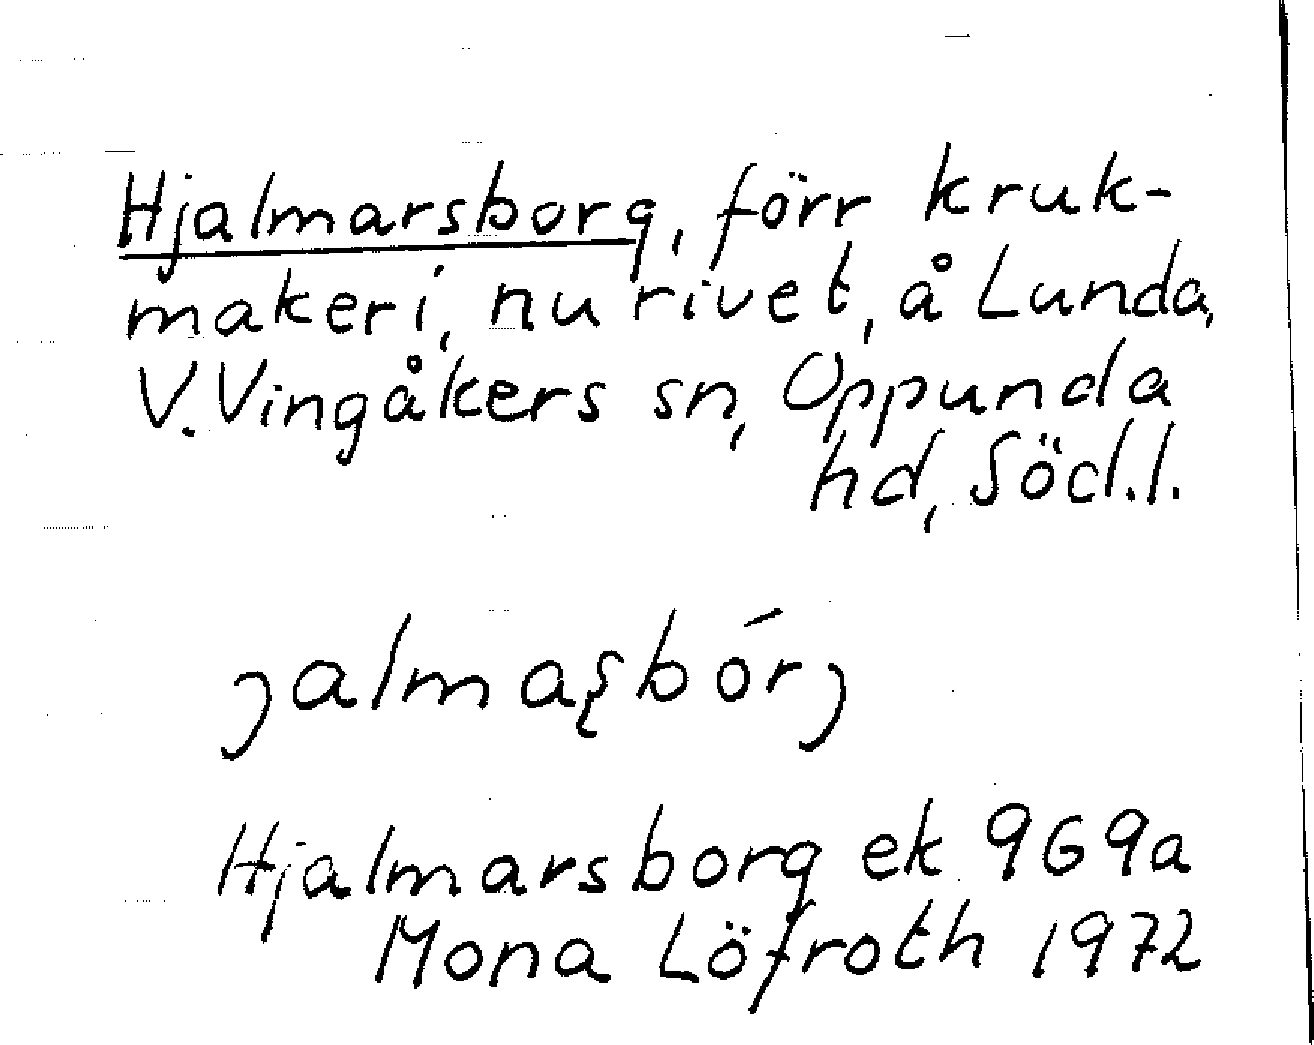 Hjalmarsborg, förr kruk-
makeri, nu rivet, å Lunda,
V. Vingåkers sn, Oppunda
hd, Söd.l.
ȷalmaʂbórȷ
Hjalmarsborg ek 9G9a
Mona Löfroth 1972